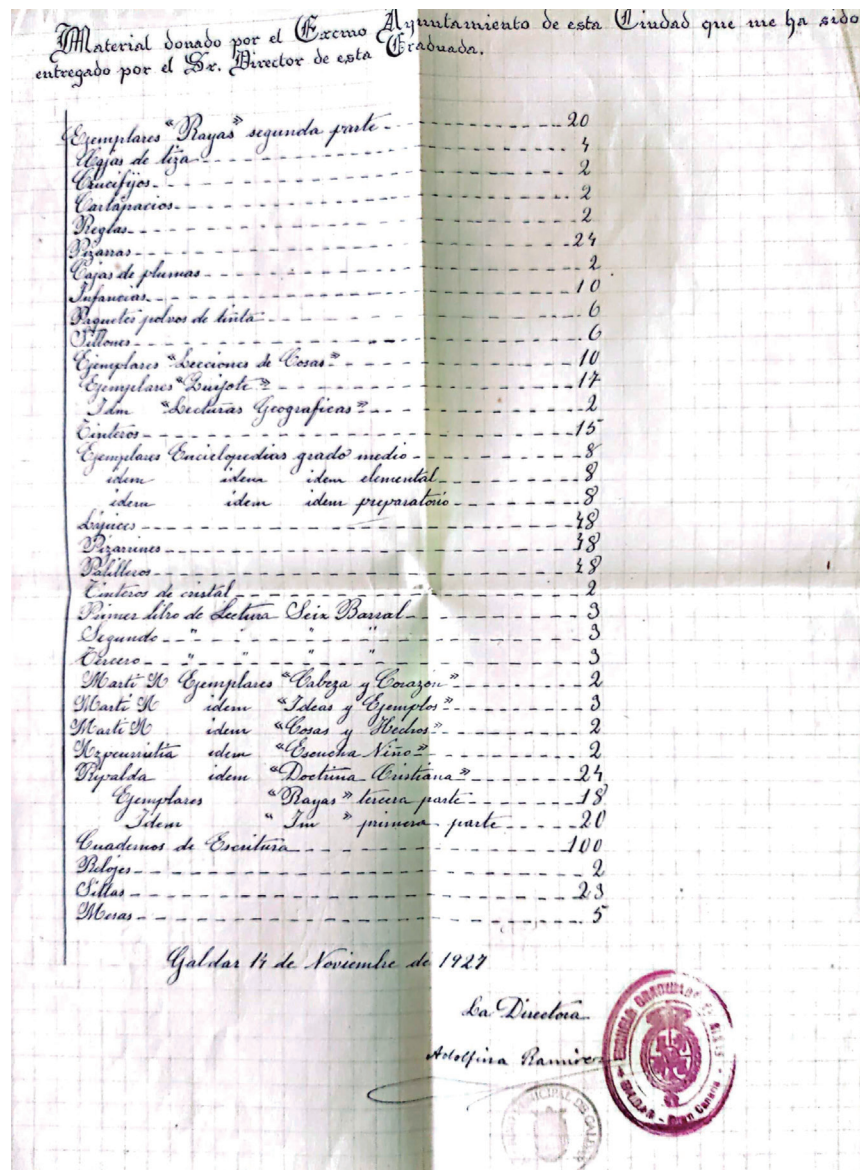 Material donado por el Excmo Ayuntamiento de esta Ciudad que me ha sido
entregado por el Sr. Director de esta Graduada.
Ejemplares "Rayas" segunda parte 20
Cajas de tiza 4
Crucifijos 2
Cartapacios 2
Reglas 2
Pizarras 24
Cajas de plumas 2
Infancias 10
Paquetes polvos de tinta 6
Sillones 6
Ejemplares "Lecciones de Cosas" 10
Ejemplares "Quijote" 17
Idm "Lecturas Geograficas" 2
Tinteros 15
Ejemplares Enciclopedias grado medio 8
idem idem idem elemental 8
idem idem idem preparatorio 8
48
Pizarrines 48
Palilleros 48
Tinteros de cristal 2
Primer libro de Lectura Seix Barral 3
Segundo " " " 3
Tercero " " " 3
Marti A Ejemplares "Cabeza y Corazón" 2
Marti A idem "Ideas y Ejemplos" 3
Marti A idem "Cosas y Hechos" 2
idem "Escucha Niño" 2
Ripalda idem "Doctrina Cristiana" 24
Ejemplares "Rayas" tercera parte 18
Idem " Im " primera parte 20
Cuadernos de Escritura 100
Relojes 2
Sillas 23
Mesas 5
Galdar 14 de Noviembre de 1927
La Directora
Adolfina Ramirez
ESCUELA GRADUADA DE NIÑAS
GALDAR - Gran Canaria
MUNICIPAL DE GALDAR